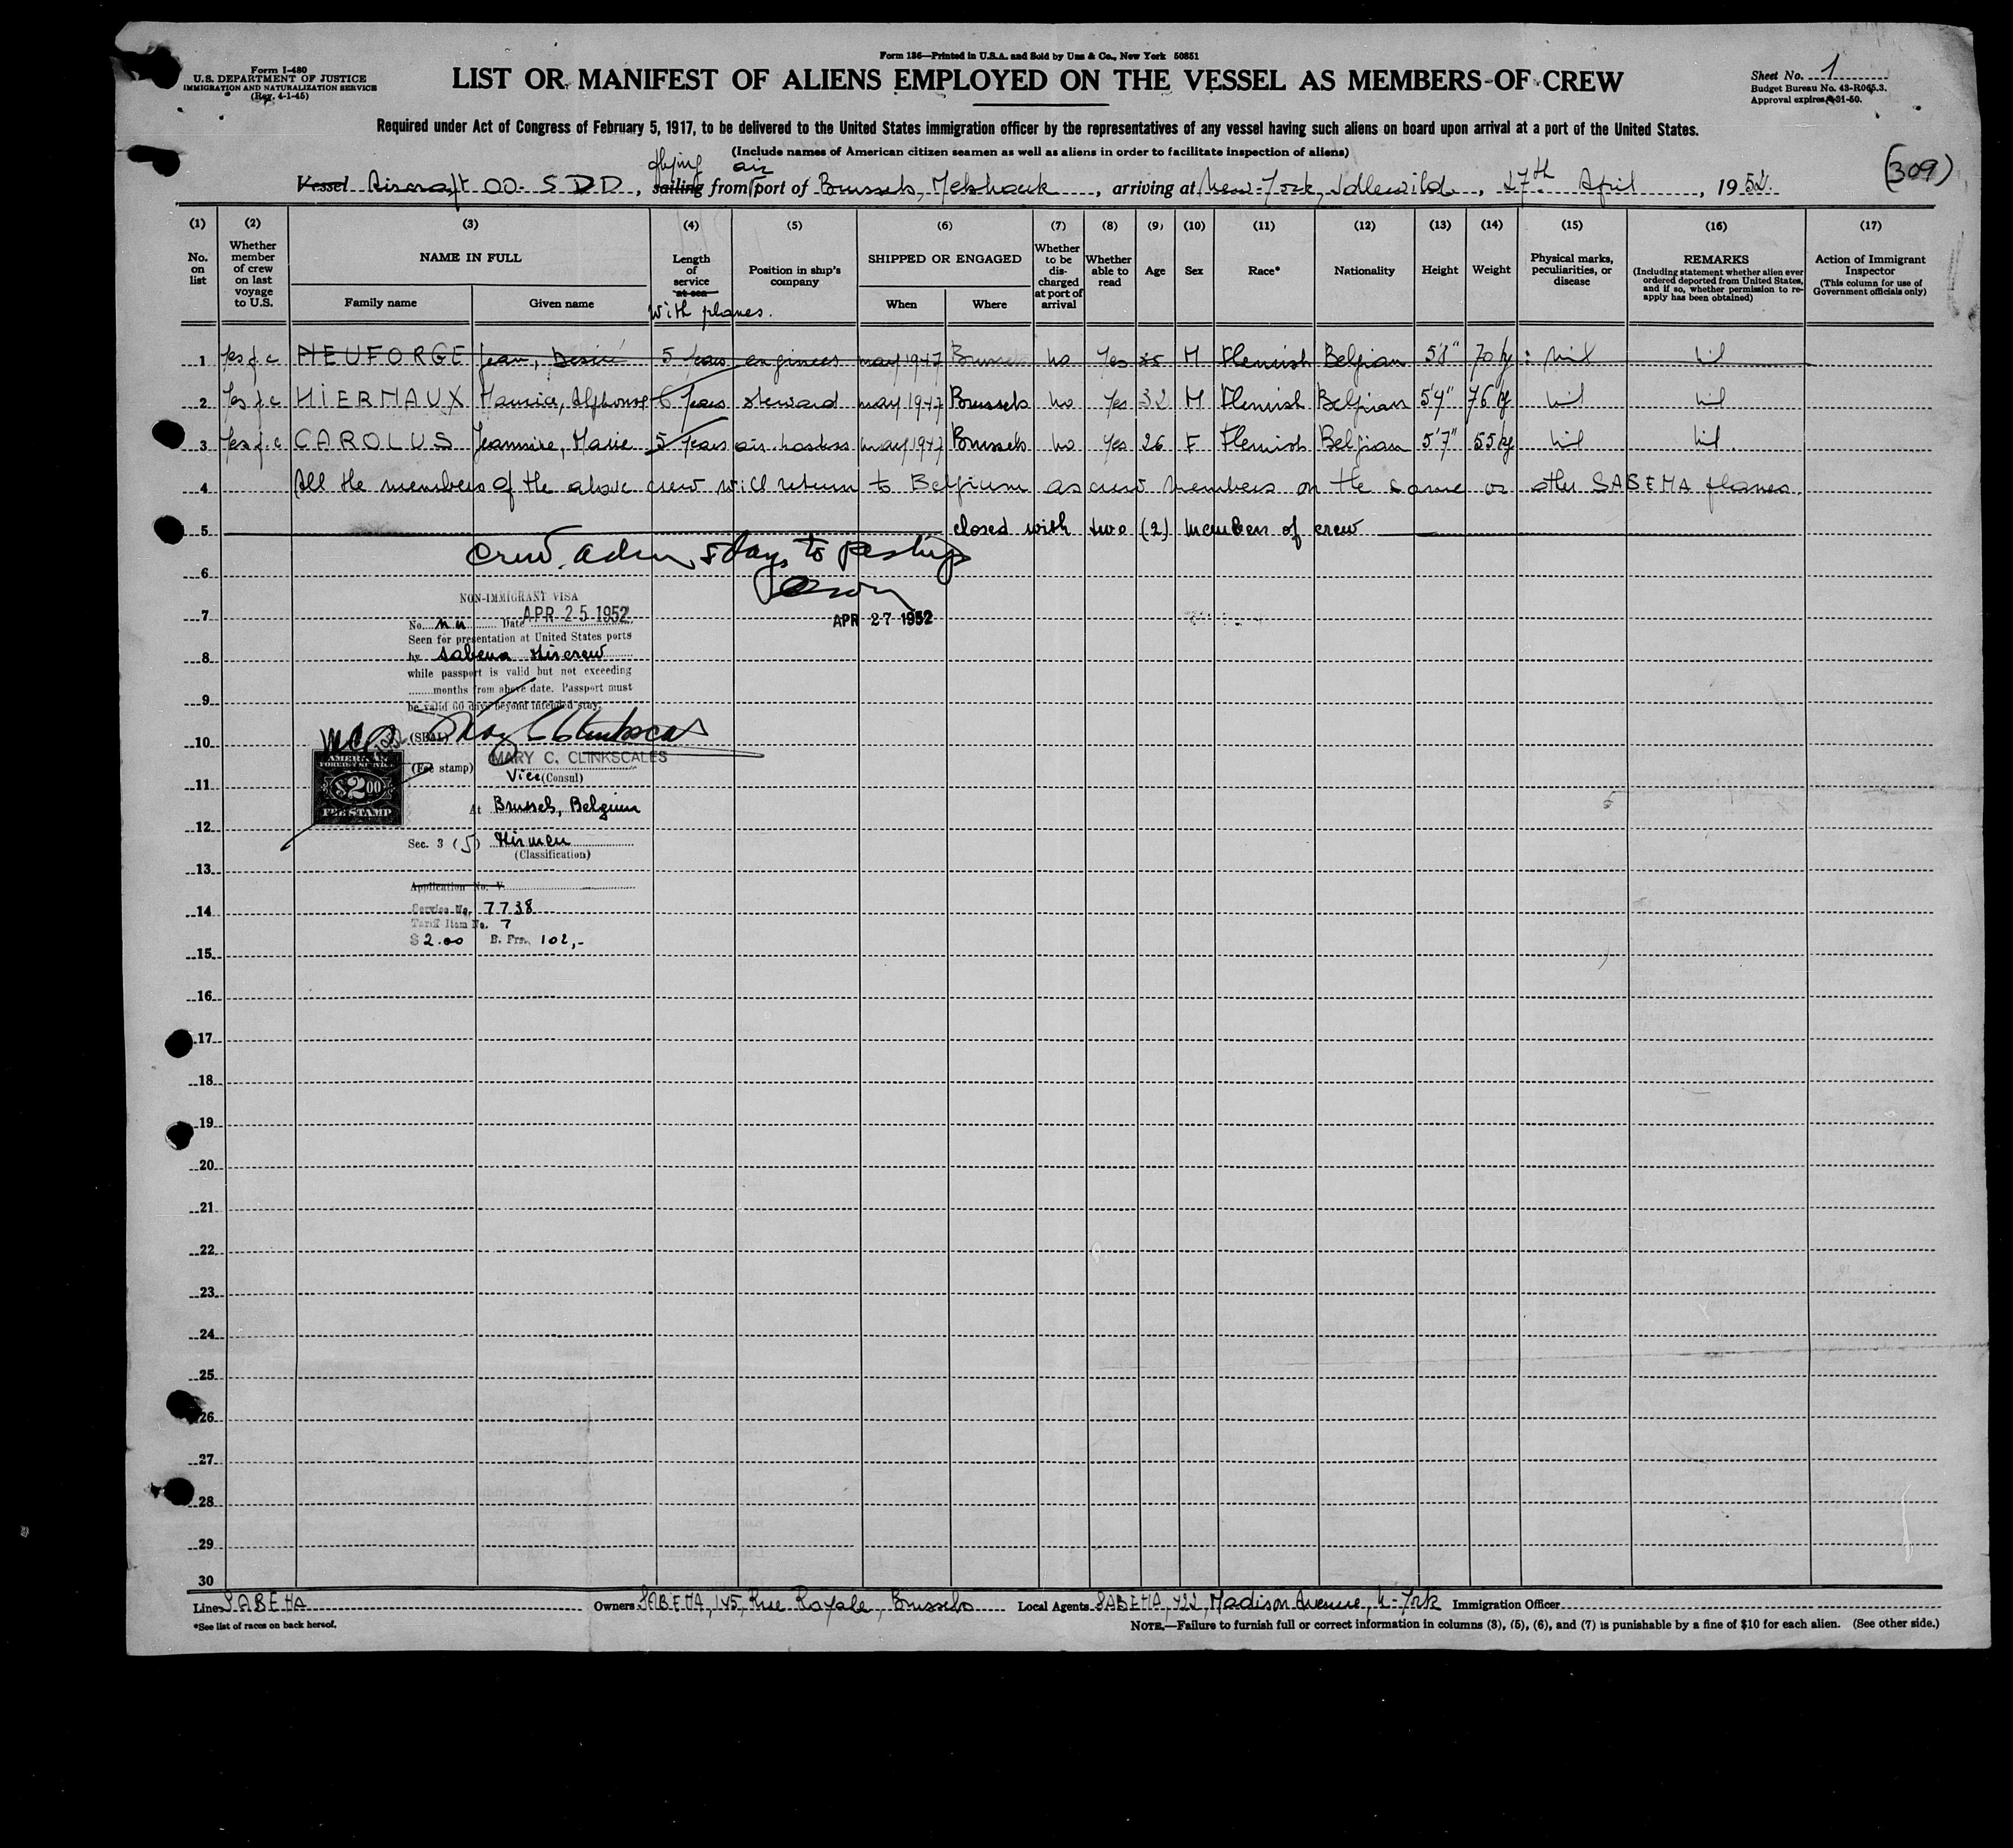 Form 136—Printed in U.S.A. and Sold by Unz & Co., New York 50851
Form I-480
U.S. DEPARTMENT OF JUSTICE
IMMIGRATION AND NATURALIZATION SERVICE
(Rev. 4-1-45)
LIST OR MANIFEST OF ALIENS EMPLOYED ON THE VESSEL AS MEMBERS OF CREW
Sheet No. 1
Budget Bureau No. 43-R065.3.
Approval expires 31-50.
Required under Act of Congress of February 5, 1917, to be delivered to the United States immigration officer by the representatives of any vessel having such aliens on board upon arrival at a port of the United States.
(Include names of American citizen seamen as well as aliens in order to facilitate inspection of aliens)
flying air
Vessel Aircraft OO-SDD, sailing from port of Brussels, Melsbroek, arriving at New-York, Idlewild, 27th April, 1952.
(309)
(1) (2) (3) (4) (5) (6) (7) (8) (9) (10) (11) (12) (13) (14) (15) (16) (17)
No. on list
Whether member of crew on last voyage to U.S.
NAME IN FULL
Family name
Given name
Length of service at sea
with planes.
Position in ship's company
SHIPPED OR ENGAGED
When
Where
Whether to be discharged at port of arrival
Whether able to read
Age
Sex
Race*
Nationality
Height
Weight
Physical marks, peculiarities, or disease
REMARKS
(Including statement whether alien ever ordered deported from United States, and if so, whether permission to re-apply has been obtained)
Action of Immigrant Inspector
(This column for use of Government officials only)
1 Yes f.c NEUFORGE Jean, Désiré 5 Years engineer may 1947 Brussels no Yes M Flemish Belgian 5'8" 70 kg nil nil
2 Yes f.c HIERNAUX Maurice, Alphonse 6 Years steward may 1947 Brussels no Yes 32 M Flemish Belgian 5'9" 76 kg nil nil
3 Yes f.c CAROLUS Jeannine, Marie 5 Years air hostess may 1947 Brussels no Yes 26 F Flemish Belgian 5'7" 55 kg nil nil.
4 All the members of the above crew will return to Belgium as crew members on the same or other SABENA planes.
5 closed with two (2) members of crew
6
7
8
9
10
11
12
13
14
15
16
17
18
19
20
21
22
23
24
25
26
27
28
29
30
APR 27 1952
NON-IMMIGRANT VISA
No. Date APR 25 1952
Seen for presentation at United States ports
by Sabena Aircrew
while passport is valid but not exceeding
months from above date. Passport must
be valid 60 days beyond intended stay.
(SEAL) Mary C Clinkscales
MARY C. CLINKSCALES
(Fee stamp)
Vice (Consul)
AMERICAN
FOREIGN SERVICE
$2.00
FEE STAMP
At Brussels, Belgium
Sec. 3 (5) Airmen
(Classification)
Application No. V
Service No. 7738
Tariff Item No. 7
$2.00 B. Frs. 102,-
Line SABENA
Owners SABENA, 145, Rue Royale, Brussels
Local Agents SABENA, 422, Madison Avenue, N-York
Immigration Officer
*See list of races on back hereof.
NOTE.—Failure to furnish full or correct information in columns (3), (5), (6), and (7) is punishable by a fine of $10 for each alien. (See other side.)